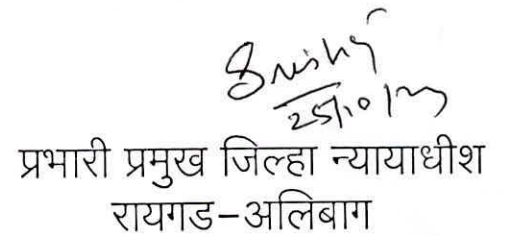 25/10/23
प्रभारी प्रमुख जिल्हा न्यायाधीश
रायगड-अलिबाग